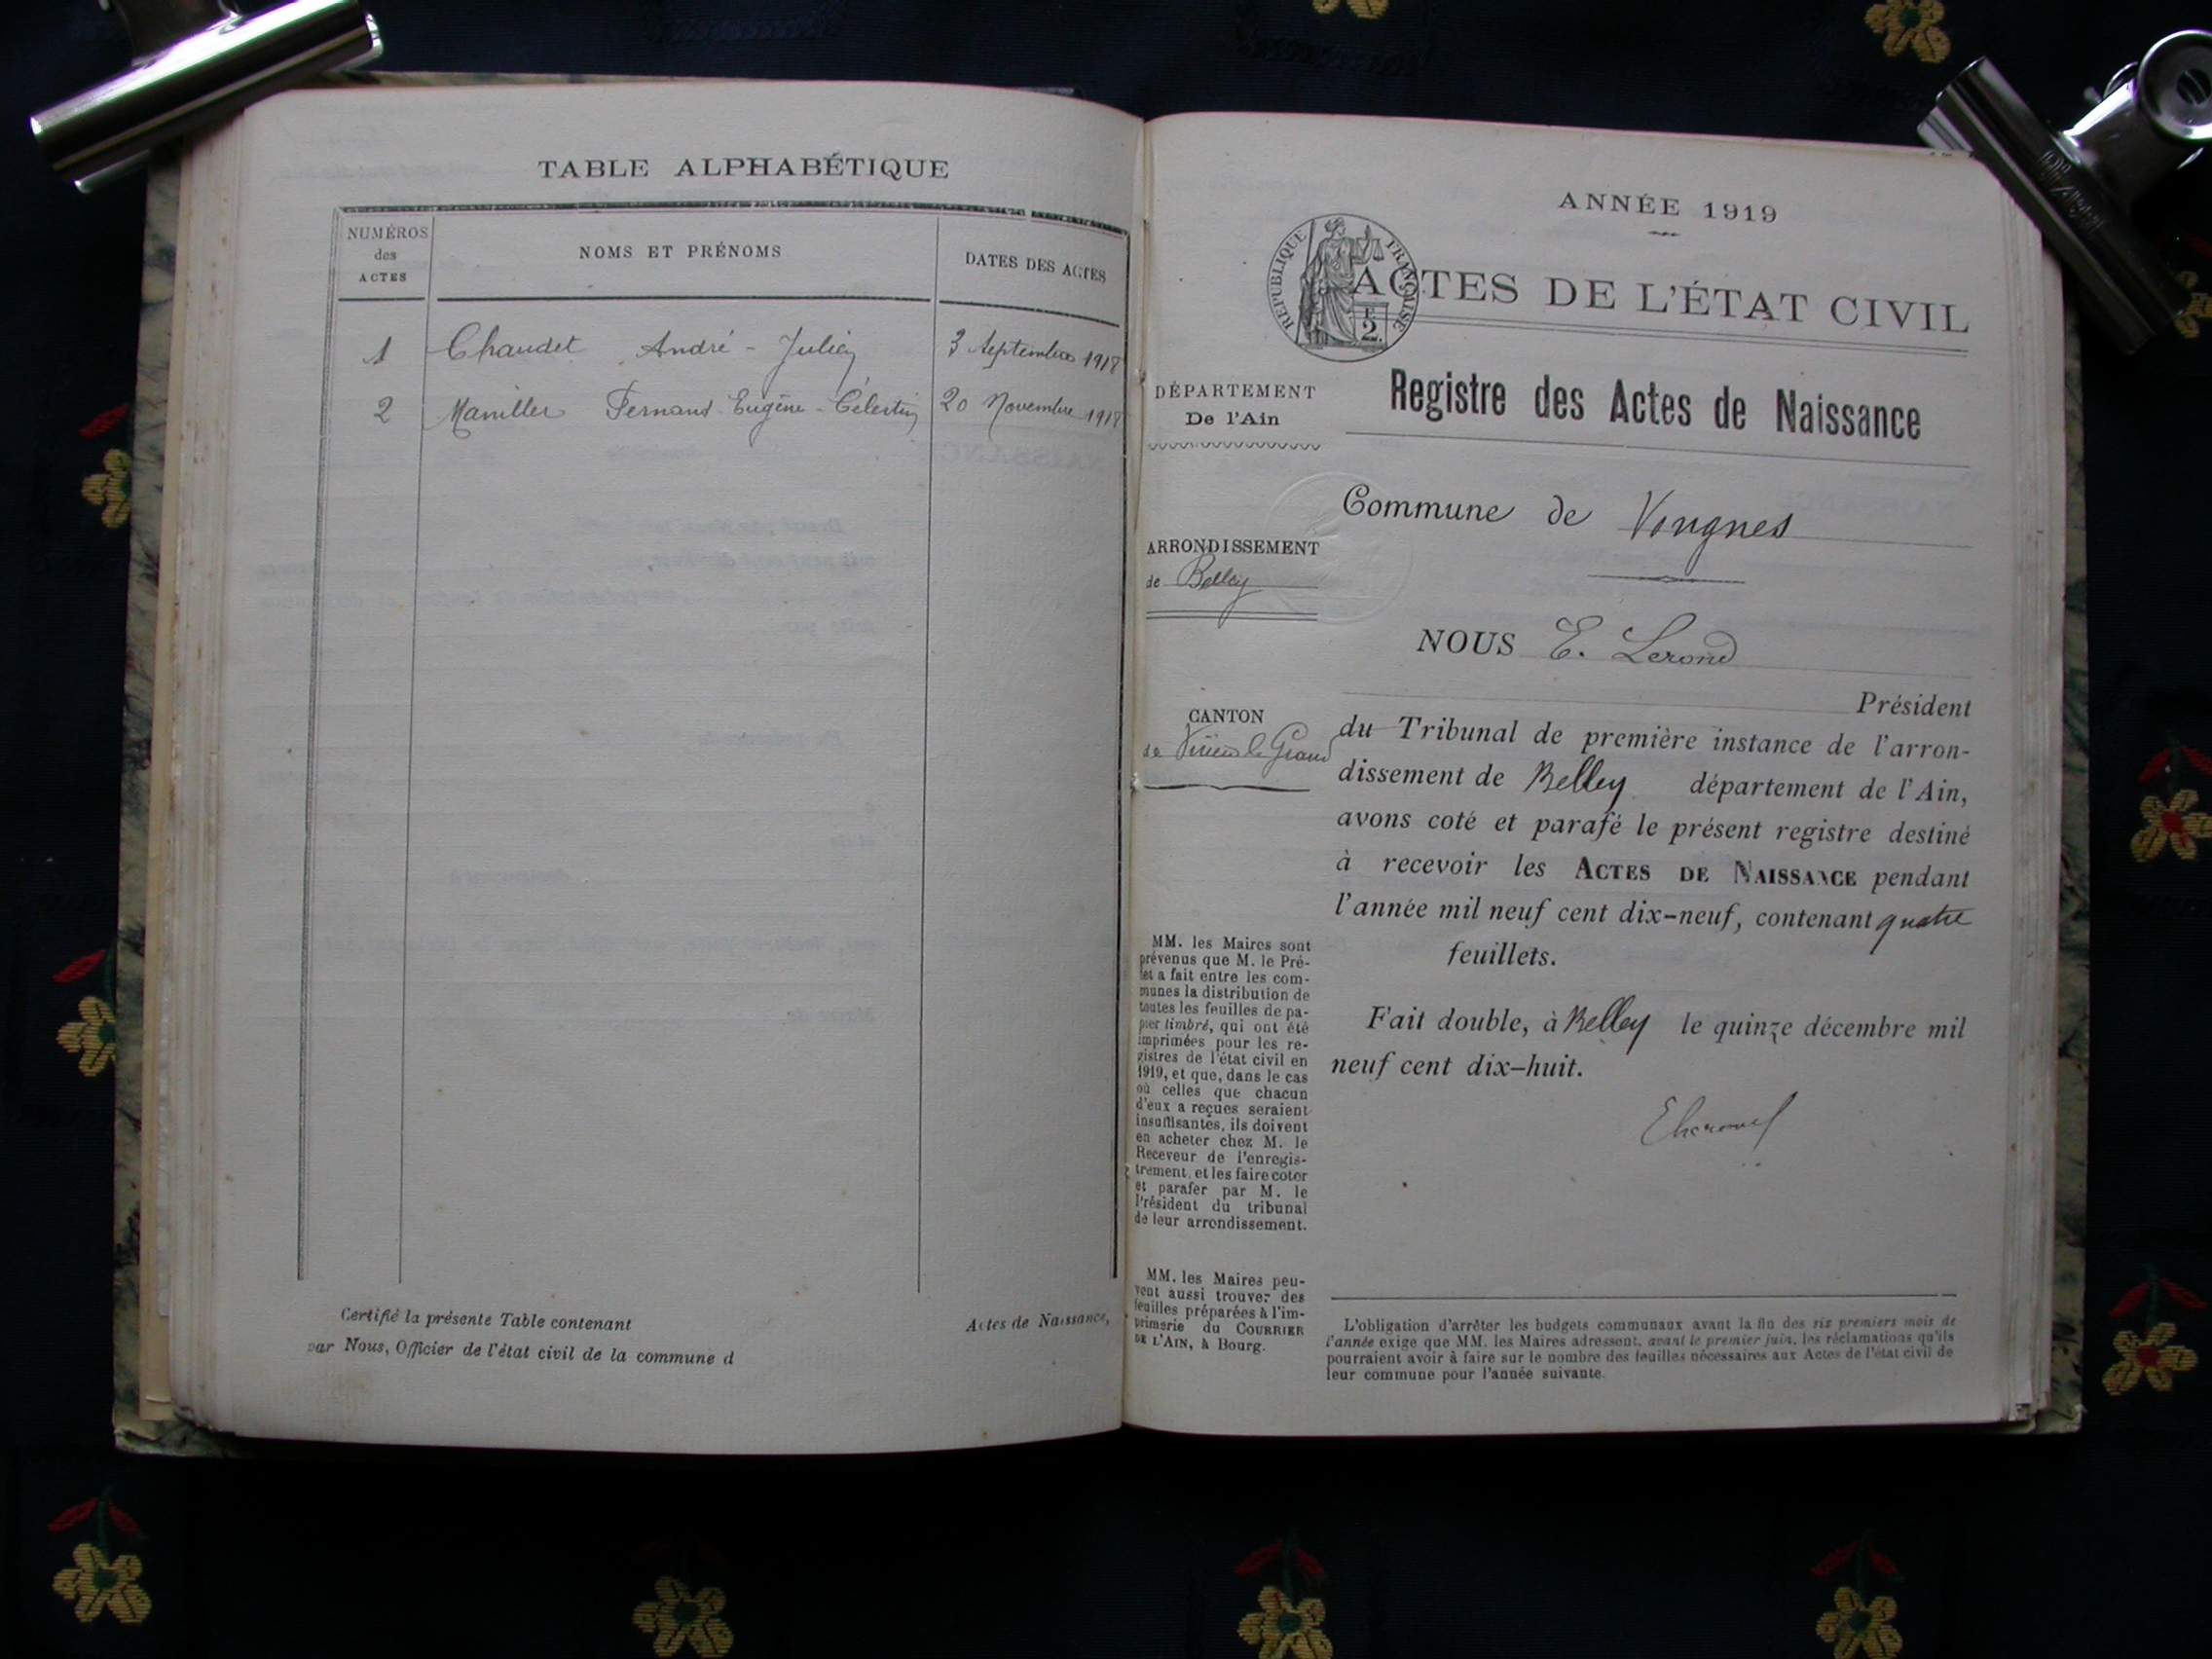 TABLE ALPHABÉTIQUE
NUMÉROS
des
ACTES
NOMS ET PRÉNOMS
DATES DES ACTES
1 Chaudet André - Julien 3 Septembre 1918
2 Maniller Fernand-Eugène-Célestin 20 Novembre 1918
Certifié la présente Table contenant Actes de Naissance,
par Nous, Officier de l'état civil de la commune d
ANNÉE 1919
RÉPUBLIQUE FRANÇAISE
2
ACTES DE L'ÉTAT CIVIL
DÉPARTEMENT
De l'Ain
Registre des Actes de Naissance
Commune de Vongnes
ARRONDISSEMENT
de Belley
NOUS E. Lerond
Président
CANTON
de Virieu le Grand
du Tribunal de première instance de l'arron-
dissement de Belley département de l'Ain,
avons coté et parafé le présent registre destiné
à recevoir les ACTES DE NAISSANCE pendant
l'année mil neuf cent dix-neuf, contenant quatre
feuillets.
Fait double, à Belley le quinze décembre mil
neuf cent dix-huit.
ELerond
MM. les Maires sont
prévenus que M. le Pré-
fet a fait entre les com-
munes la distribution de
toutes les feuilles de pa-
pier timbré, qui ont été
imprimées pour les re-
gistres de l'état civil en
1919, et que, dans le cas
où celles que chacun
d'eux a reçues seraient
insuffisantes, ils doivent
en acheter chez M. le
Receveur de l'enregis-
trement, et les faire coter
et parafer par M. le
Président du tribunal
de leur arrondissement.
MM. les Maires peu-
vent aussi trouver des
feuilles préparées à l'im-
primerie du COURRIER
DE L'AIN, à Bourg.
L'obligation d'arrêter les budgets communaux avant la fin des six premiers mois de
l'année exige que MM. les Maires adressent, avant le premier juin, les réclamations qu'ils
pourraient avoir à faire sur le nombre des feuilles nécessaires aux Actes de l'état civil de
leur commune pour l'année suivante.